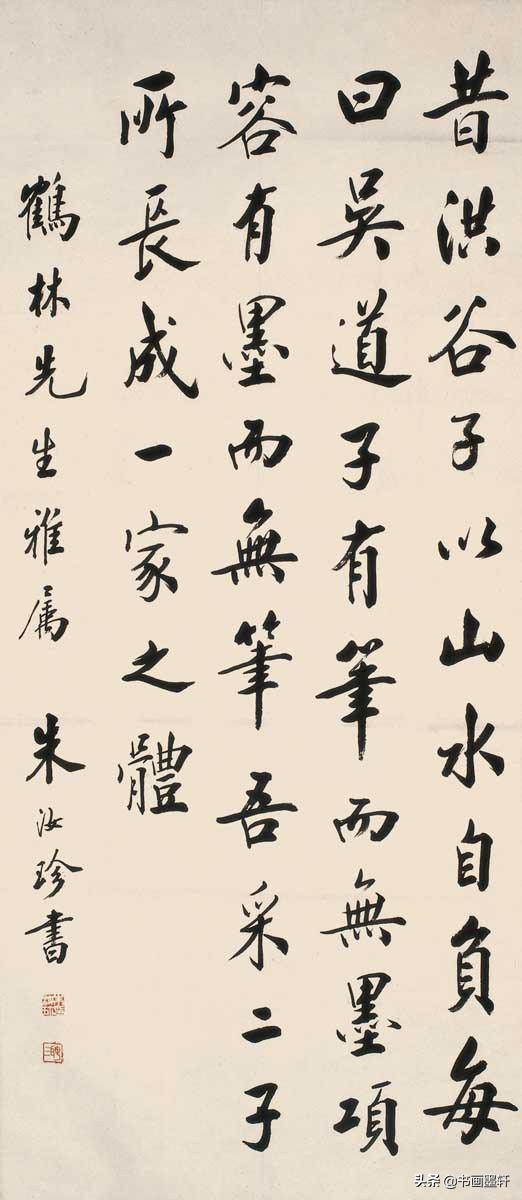 昔洪谷子以山水自負每
曰吳道子有筆而無墨項
容有墨而無筆吾采二子
所長成一家之體
鶴林先生雅属 朱汝珍書
头条@书画墨轩